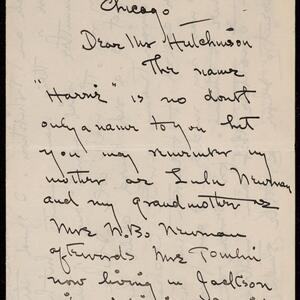 Chicago
Dear Mr Hutchinson
The name
"Harris" is no doubt
only a name to you but
you may remember my
mother as Lulu Newman
and my grandmother as
Mrs W.B. Newman
afterwards Mrs Tomlin
now living in Jackson